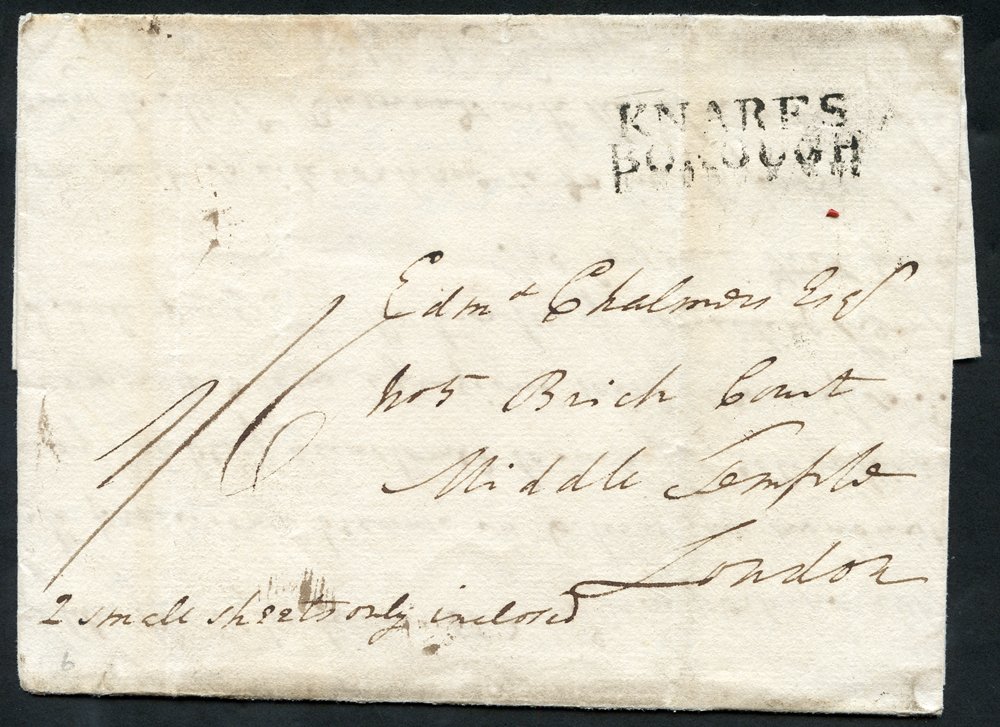 KNARES
BOROUGH
Edm^d Chalmers Esq^r
No 5 Brick Court
Middle Temple
London
1/6
2 small sheets only inclosed
6